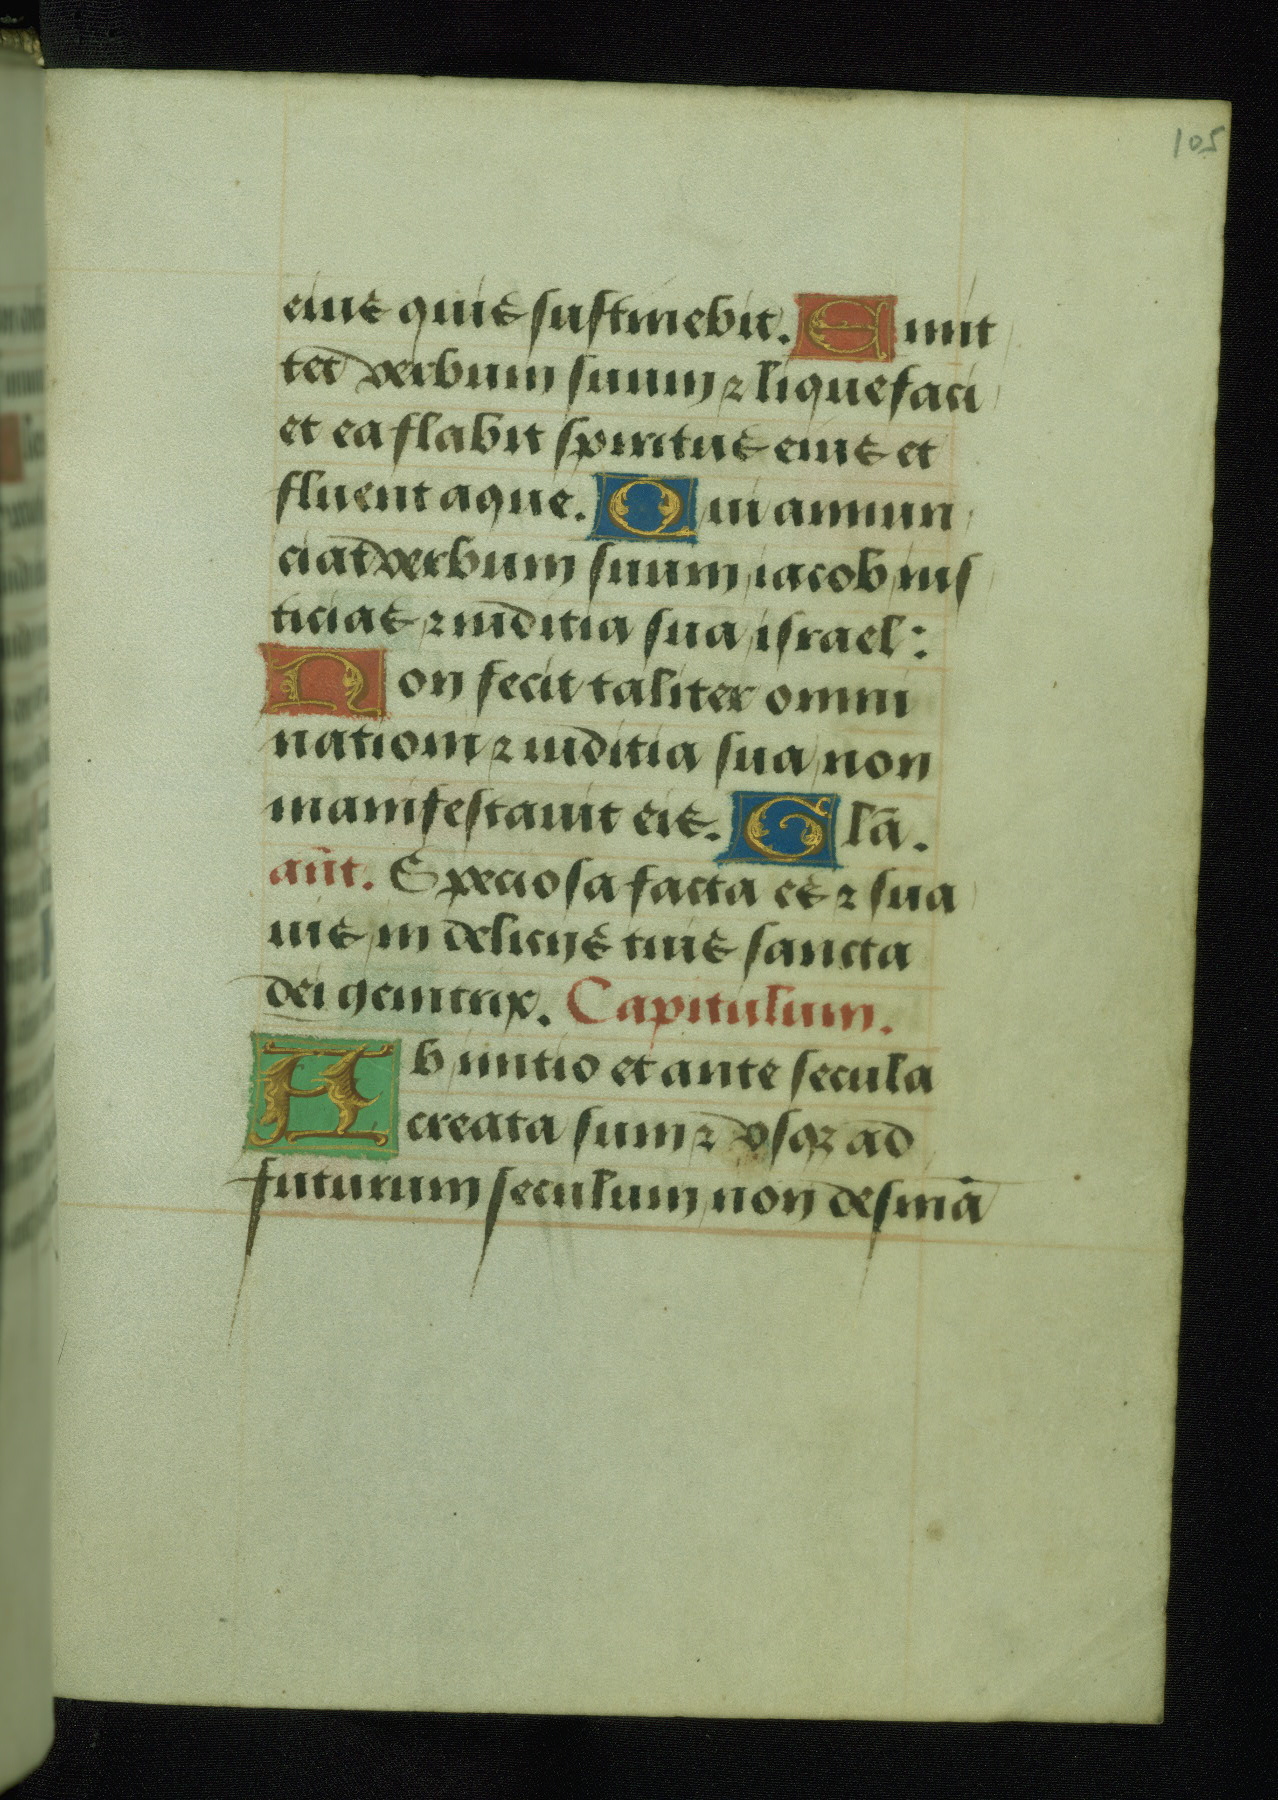 105
eius quis sustinebit. Emit
tet verbum suum ⁊ liquefaci
et ea flabit spiritus eius et
fluent aque. Qui annun
ciat verbum suum iacob ius
ticias ⁊ iuditia sua israel:
Non fecit taliter omni
nationi ⁊ iuditia sua non
manifestavit eis. Glā.
an̄t. Speciosa facta es ⁊ sua
vis in delicijs tuis sancta
dei genitrix. Capitulum.
Ab initio et ante secula
creata sum ⁊ vsqꝫ ad
futurum seculum non desinā